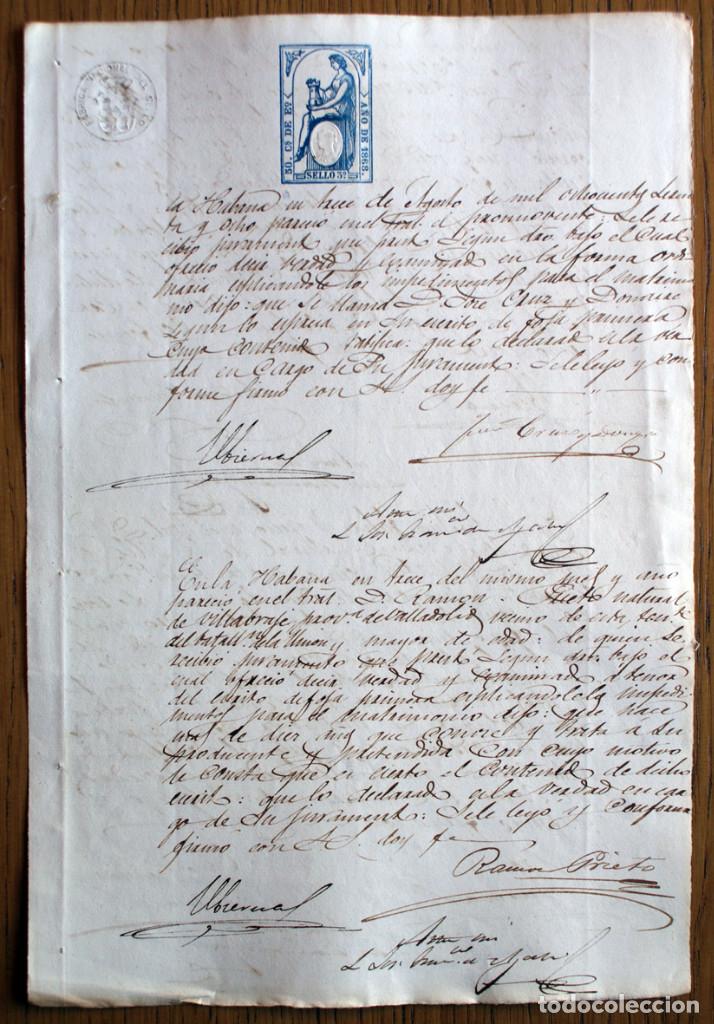 50. Cs DE Eo
AÑO DE 1868.
SELLO 3º
la Habana en trece de Agosto de mil ochocientos sesen
ta y ocho pareció en el Tral. el promovente: se le re
cibió juramento que prestó segun dro. bajo el cual
ofreció decir verdad y examinad en la forma ordi
naria esplicandole los impedimentos para el matrimo
nio dijo: que se llama D. José Cruz y Donoso
segun lo espresa en su escrito de foja primera
cuyo contenido ratifica: que lo declarado es la ver
dad en cargo de su juramento: se le leyó y con
forme firmó con S.S. doy fe
José Cruz y
Ante mi
En la Habana en trece del mismo mes y año
pareció en el tral. D. Ramon Prieto natural
de Villabraje prova. de Valladolid vecino de esta
del batallon de la Union y mayor de edad: de quien se
recibió juramento que prestó segun dro. bajo el
cual ofreció decir verdad y examinado a tenor
del escrito de foja primera esplicandole los impedi
mentos para el matrimonio dijo: que hace
mas de diez años que conoce y trata a su
producente y pretendida con cuyo motivo
le consta que es cierto el contenido de dicho
escrito: que lo declarado es la verdad en car
go de su juramento: se le leyó y conforme
firmó con S.S. doy fe
Ramon Prieto
Ante mi
todocoleccion